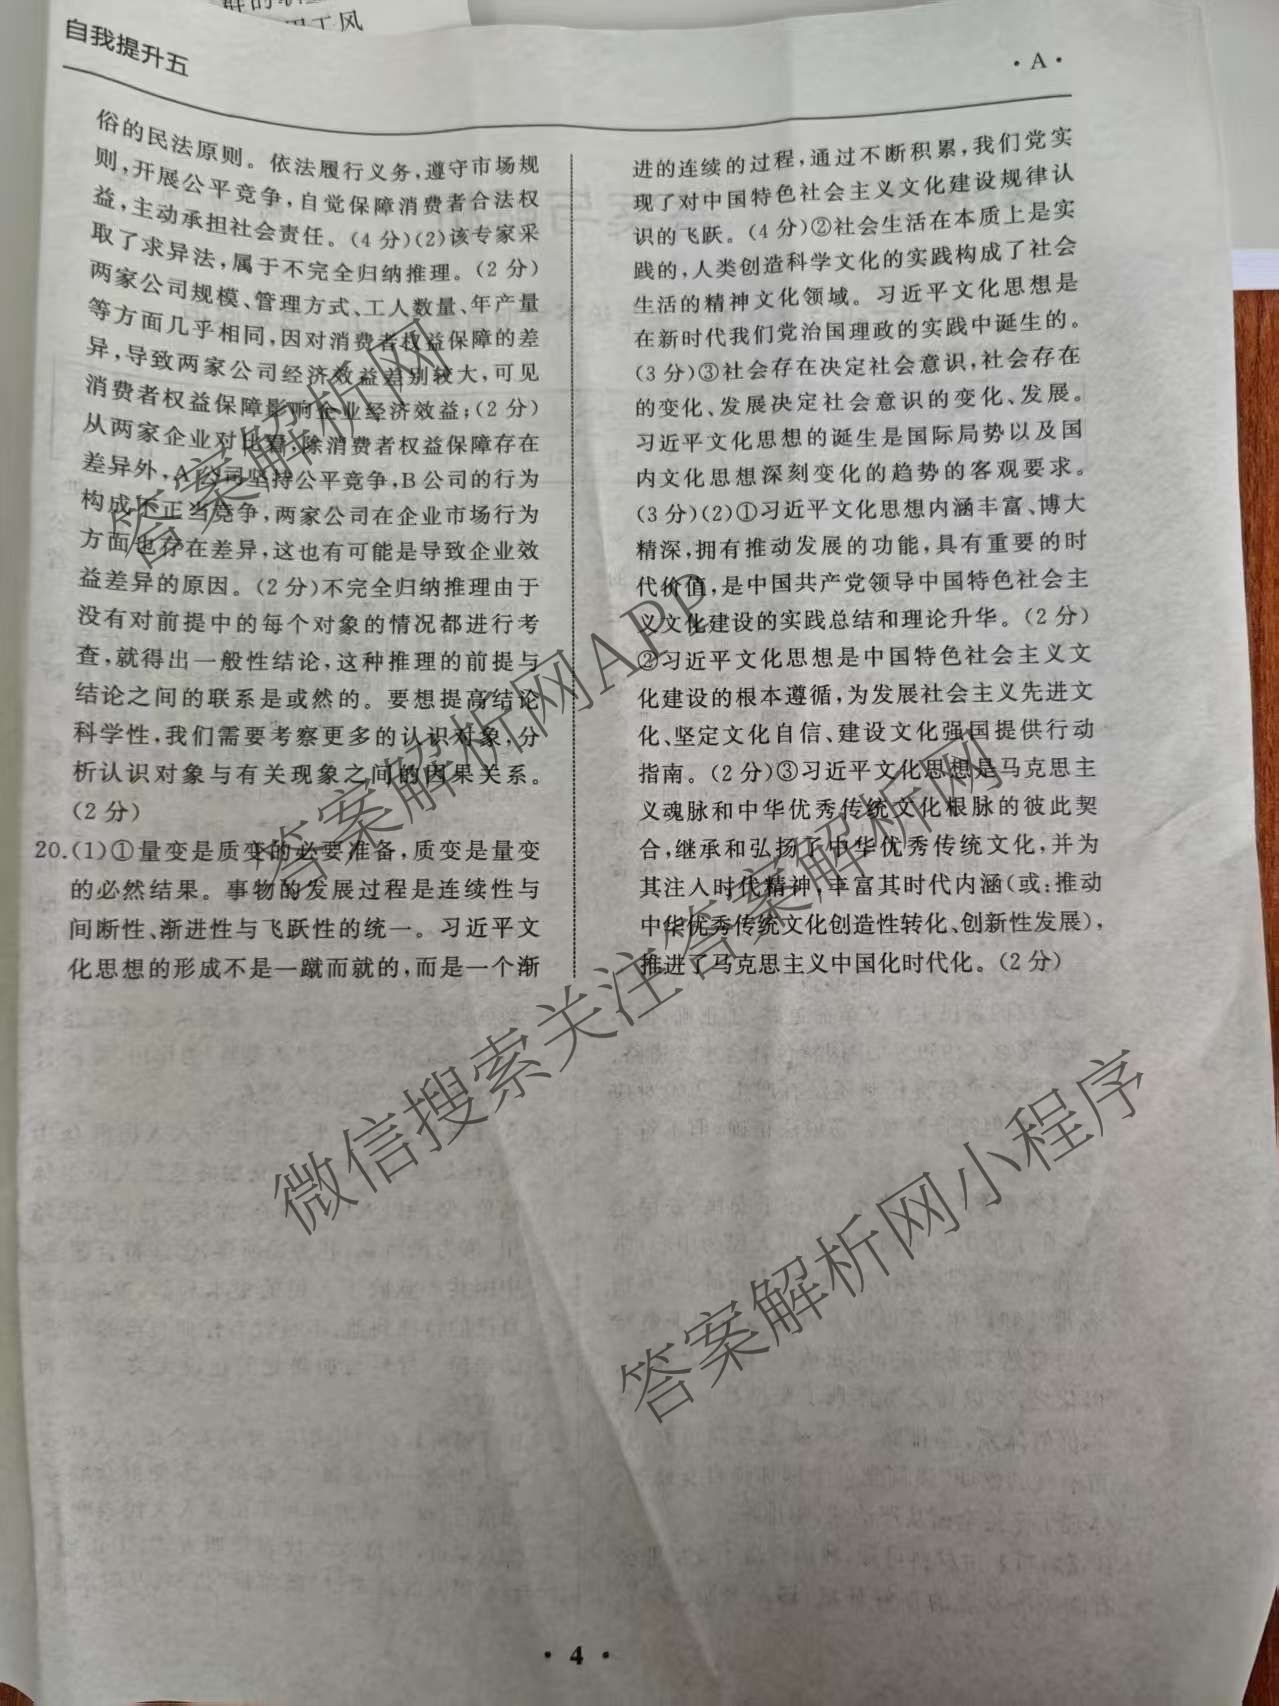 自我提升五
·A·
俗的民法原则。依法履行义务,遵守市场规
则,开展公平竞争,自觉保障消费者合法权
益,主动承担社会责任。(4分)(2)该专家采
取了求异法,属于不完全归纳推理。(2分)
两家公司规模、管理方式、工人数量、年产量
等方面几乎相同,因对消费者权益保障的差
异,导致两家公司经济效益差别较大,可见
消费者权益保障影响企业经济效益;(2分)
从两家企业对比看,除消费者权益保障存在
差异外,A公司坚持公平竞争,B公司的行为
构成不正当竞争,两家公司在企业市场行为
方面也存在差异,这也有可能是导致企业效
益差异的原因。(2分)不完全归纳推理由于
没有对前提中的每个对象的情况都进行考
查,就得出一般性结论,这种推理的前提与
结论之间的联系是或然的。要想提高结论
科学性,我们需要考察更多的认识对象,分
析认识对象与有关现象之间的因果关系。
(2分)
20.(1)①量变是质变的必要准备,质变是量变
的必然结果。事物的发展过程是连续性与
间断性、渐进性与飞跃性的统一。习近平文
化思想的形成不是一蹴而就的,而是一个渐
进的连续的过程,通过不断积累,我们党实
现了对中国特色社会主义文化建设规律认
识的飞跃。(4分)②社会生活在本质上是实
践的,人类创造科学文化的实践构成了社会
生活的精神文化领域。习近平文化思想是
在新时代我们党治国理政的实践中诞生的。
(3分)③社会存在决定社会意识,社会存在
的变化、发展决定社会意识的变化、发展。
习近平文化思想的诞生是国际局势以及国
内文化思想深刻变化的趋势的客观要求。
(3分)(2)①习近平文化思想内涵丰富、博大
精深,拥有推动发展的功能,具有重要的时
代价值,是中国共产党领导中国特色社会主
义文化建设的实践总结和理论升华。(2分)
②习近平文化思想是中国特色社会主义文
化建设的根本遵循,为发展社会主义先进文
化、坚定文化自信、建设文化强国提供行动
指南。(2分)③习近平文化思想是马克思主
义魂脉和中华优秀传统文化根脉的彼此契
合,继承和弘扬了中华优秀传统文化,并为
其注入时代精神,丰富其时代内涵(或:推动
中华优秀传统文化创造性转化、创新性发展),
推进了马克思主义中国化时代化。(2分)
答案解析网
答案解析网APP
微信搜索关注答案解析网
答案解析网小程序
·4·